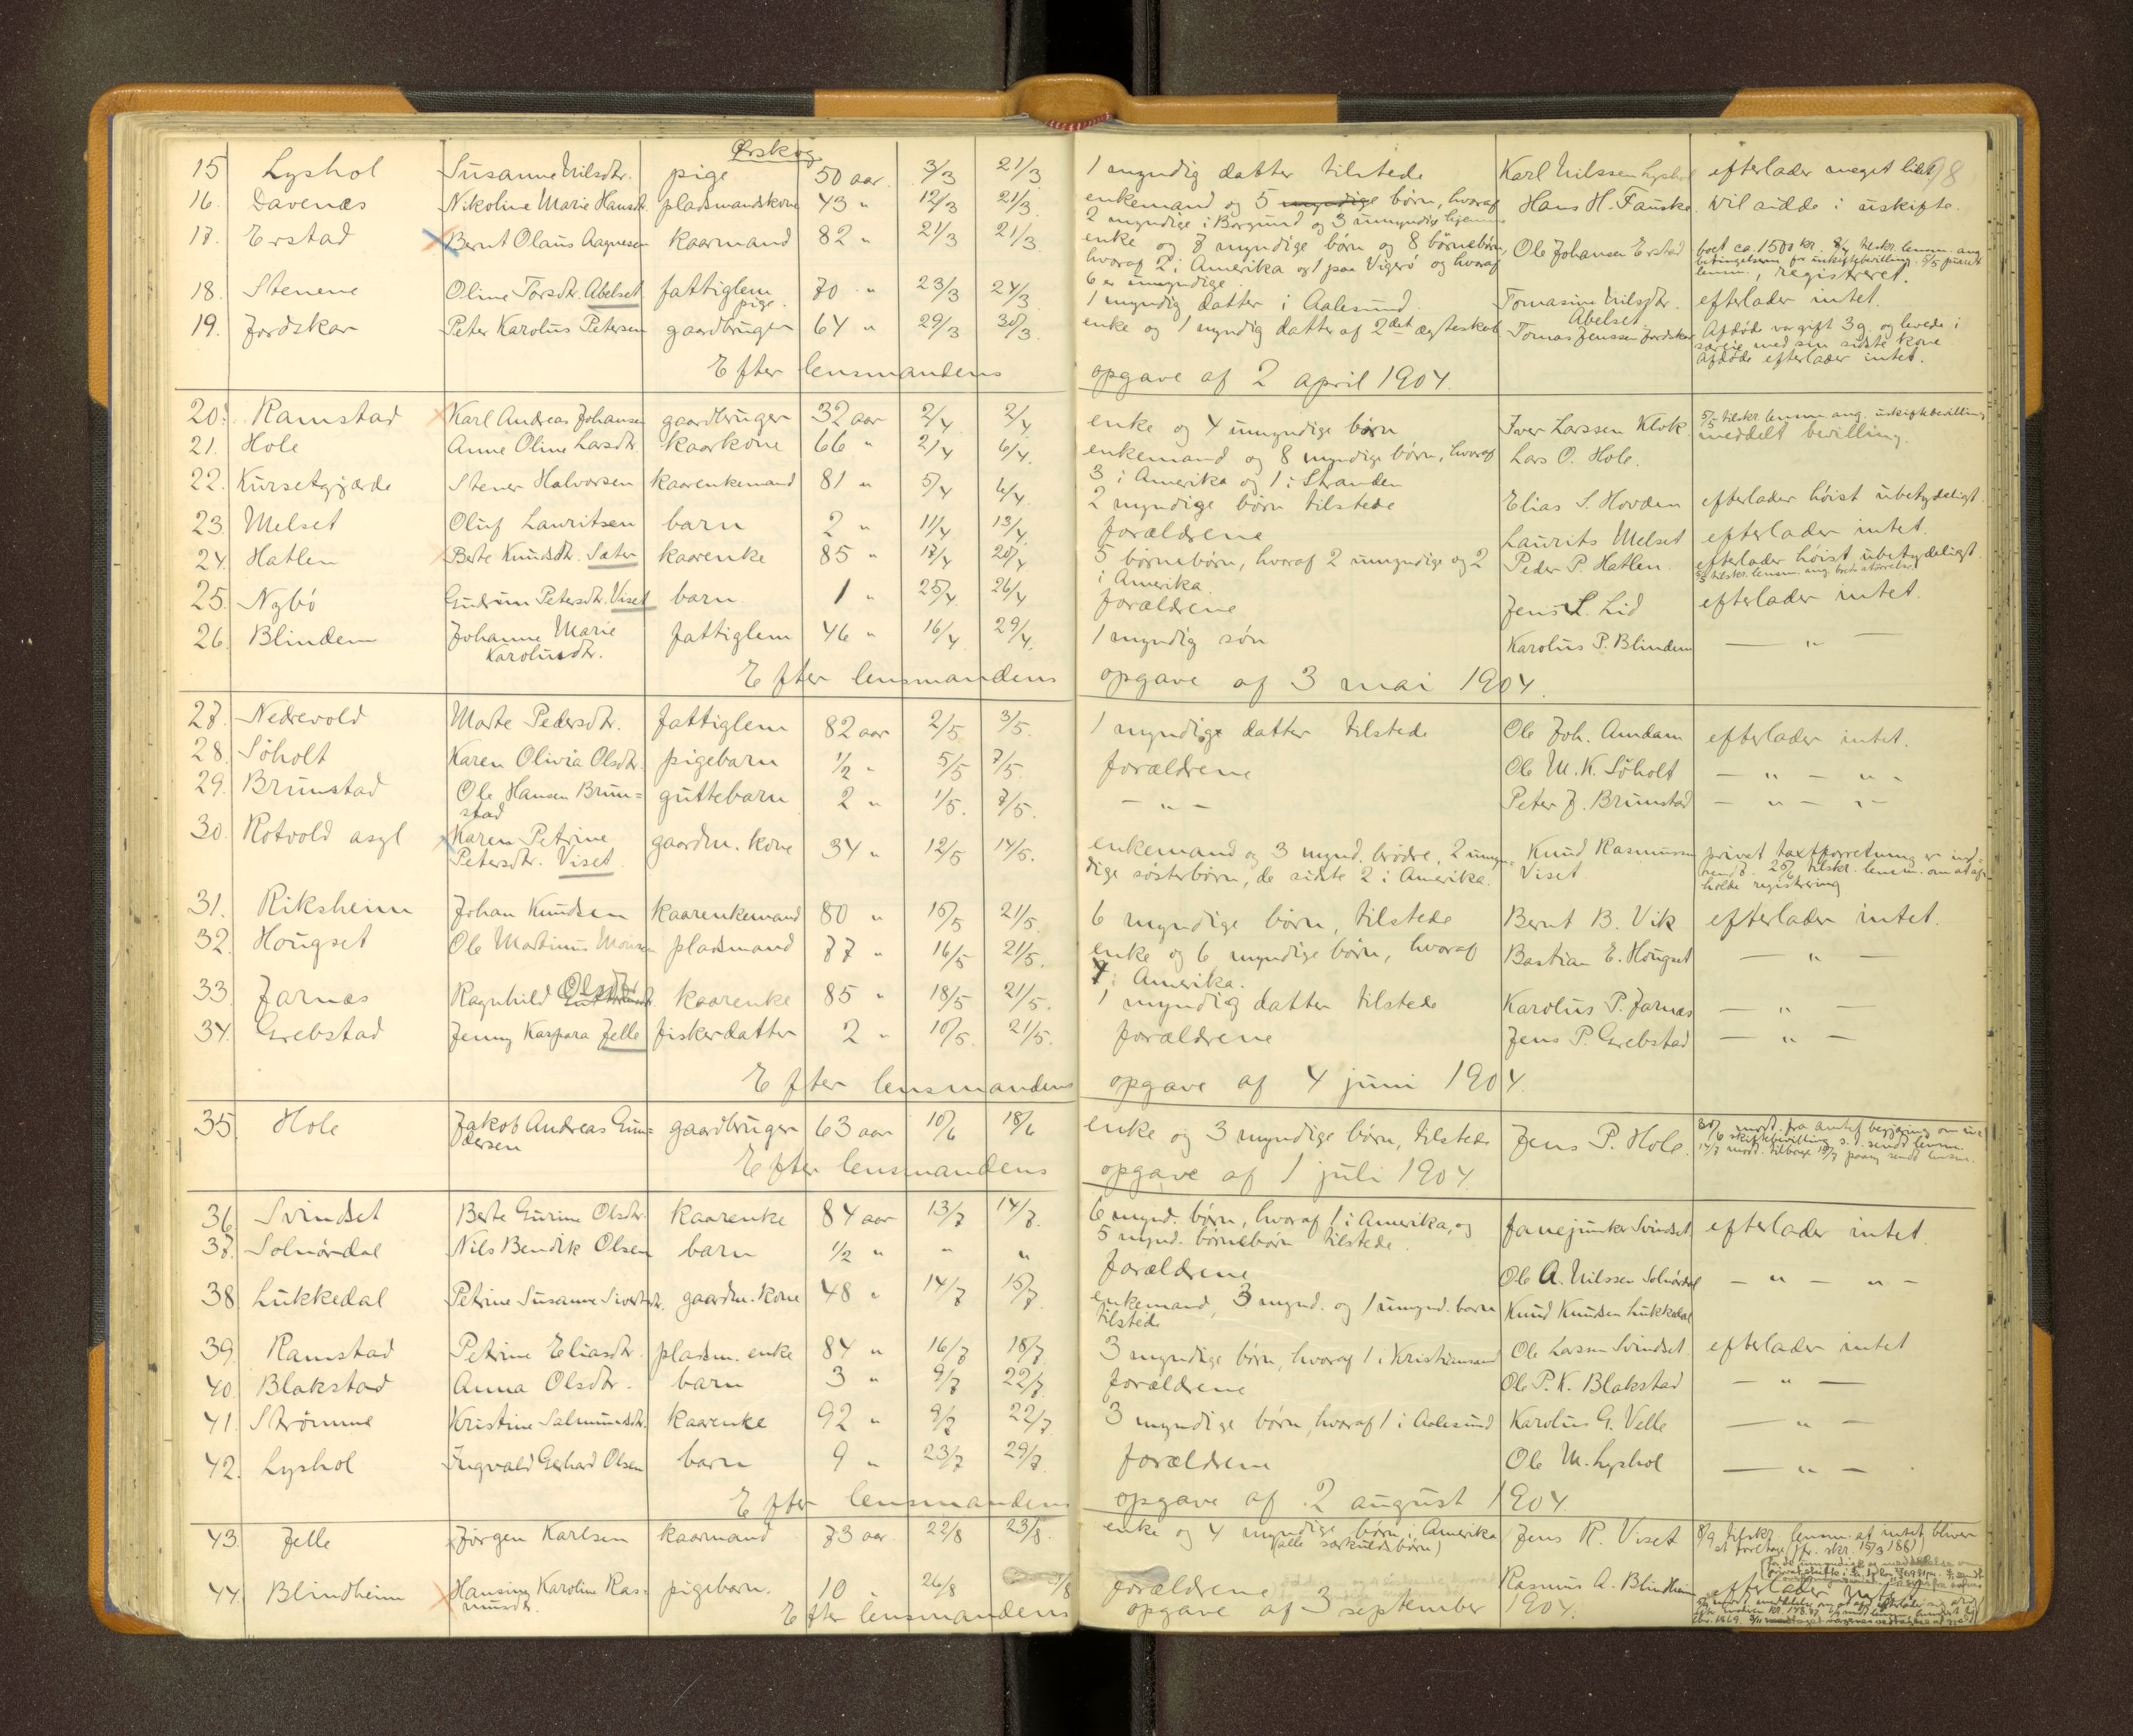 Ørskog
98
15 Lyshol Susanne Nilsdtr. pige 50 aar 3/3 21/3 1 myndig datter tilstede Karl Nilssen Lyshol efterlader meget lidt
16. Davenes Nikoline Marie Hansdtr. pladsmandskone 43 " 12/3 21/3 enkemand og 5 myndige børn, hvoraf Hans H. Fauske. vil sidde i uskifte.
2 myndige i Borgund og 3 umyndige hjemme
17. Erstad Bernt Olaus Aagnesen kaarmand 82 " 21/3 21/3 enke og 7 myndige børn og 8 børnebørn, Ole Johansen Erstad boet ca. 1500 kr. 8/4 tilskr. lensm. ang.
hvoraf 2 i Amerika og 1 paa Vigerø og hvoraf betingelsen for uskiftebevilling. 5/5
6 er umyndige. lensm., registreret.
18. Stenene Oline Torsdtr. Abelset fattiglem 70 " 23/3 24/3 1 myndig datter i Aalesund. Tomasine Nilsdtr. efterlader intet.
pige. Abelset
19. Jordskar Peter Karolus Petersen gaardbruger 64 " 29/3 30/3 enke og 1 myndig datter af 2det ægteskab Tomas Jenssen Jordskar Afdøde var gift 3 g. og levede i
særeie med sin sidste kone
Afdøde efterlader intet.
Efter lensmandens opgave af 2 april 1904.
20. Ramstad Karl Andreas Johansen gaardbruger 32 aar 2/4 2/4 enke og 4 umyndige børn Iver Larssen Klok 5/5 tilskr. lensm. ang. uskiftebevilling
meddelt bevilling.
21. Hole Anne Oline Larsdtr. kaarkone 66 " 2/4 6/4. enkemand og 8 myndige børn, hvoraf Lars O. Hole.
3 i Amerika og 1 i Stranden
22. Kursetgjærde Stener Halvorsen kaarenkemand 81 " 5/4 6/4. 2 myndige børn tilstede Elias S. Hovden efterlader høist ubetydeligt.
23. Melset Oluf Lauritsen barn 2 " 11/4 13/4. forældrene Laurits Melset efterlader intet.
24. Hatlen Berte Knudsdtr. Sæter kaarenke 85 " 17/4 20/4 5 børnebørn, hvoraf 2 umyndige og 2 Peder P. Hatlen. efterlader høist ubetydeligt.
i Amerika. 5/5 tilskr. lensm. ang. boets størrelse.
25. Nybø Gudrun Petersdtr. Viset barn 1 " 25/4 26/4 forældrene Jens L. Lid efterlader intet.
26. Blindem Johanne Marie fattiglem 46 " 16/4 29/4. 1 myndig søn Karolus P. Blindem — " —
Karolusdtr.
Efter lensmandens opgave af 3 mai 1904.
27. Nedrevold Marte Pedersdtr. fattiglem 82 aar 2/5 3/5. 1 myndig datter tilstede Ole Joh. Amdam efterlader intet.
28. Søholt Karen Olivia Olsdtr. pigebarn 1/2 " 5/5 7/5. forældrene Ole M. K. Søholt — " — " -
29. Brunstad Ole Hansen Brun= guttebarn 2 " 1/5. 7/5. — " — Peter J. Brunstad — " — " —
stad
30. Rotvold asyl Karen Petrine gaardm. kone 34 " 12/5 14/5. enkemand og 3 mynd. brødre, 2 umyn= Knud Rasmussen privat taxtforretning er ind=
Petersdtr. Viset. dige søsterbørn, de sidste 2 i Amerika. Viset. sendt. 20/6 tilskr. lensm. om at af=
holde registrering
31. Riksheim Johan Knudsen kaarenkemand 80 " 15/5 21/5. 6 myndige børn, tilstede Bernt B. Vik efterlader intet.
32. Hougset Ole Martinus Monsen pladsmand 77 " 16/5 21/5. enke og 6 myndige børn, hvoraf Bastian E. Hougset — " —
4 i Amerika.
33. Jarnæs Ragnhild Olsdtr. kaarenke 85 " 18/5 21/5. 1 myndig datter tilstede Karolus P. Jarnæs — " —
34. Grebstad Jenny Kaspara Jelle fiskerdatter 2 " 10/5. 21/5. forældrene Jens P. Grebstad — " —
Efter lensmandens opgave af 4 juni 1904.
35. Hole Jakob Andreas Gun= gaardbruger 63 aar 10/6 18/6 enke og 3 myndige børn, tilstede Jens P. Hole. 30/6 modt. fra amtet begjæring om u=
dersen skiftebevilling s. d. sendt lensm.
14/7 modt. tilbage 18/7 paany sendt lensm.
Efter lensmandens opgave af 1 juli 1904.
36. Svindset Berte Gurine Olsdtr. kaarenke 84 aar 13/7 14/7. 6 mynd. børn, hvoraf 1 i Amerika, og fanejunker Svindset efterlader intet.
5 mynd. børnebørn tilstede.
37. Solnørdal Nils Bendik Olsen barn 1/2 " " " forældrene Ole A. Nilssen Solnørdal — " — " —
38. Lukkedal Petrine Susanne Sivertsdtr. gaardm. kone 48 " 14/7 15/7 enkemand, 3 mynd. og 1 umynd. barn Knud Knudsen Lukkedal
tilstede
39. Ramstad Petrine Eliasdtr. pladsm. enke 84 " 16/7 18/7 3 myndige børn, hvoraf 1 i Kristiansund Ole Larsen Svindset efterlader intet
40. Blakstad Anna Olsdtr. barn 3 " 9/7 22/7. forældrene Ole P. K. Blakstad — " —
41. Strømme Kristine Salmundsdtr. kaarenke 92 " 9/7 22/7 3 myndige børn, hvoraf 1 i Aalesund Karolus G. Velle — " —
42. Lyshol Ingvald Gerhard Olsen barn 9 " 23/7 29/7. forældrene Ole M. Lyshol — " —
Efter lensmandens opgave af 2 august 1904.
43. Jelle Jørgen Karlsen kaarmand 73 aar 22/8 23/8. enke og 4 myndige børn i Amerika Jens R. Viset 8/9 tilskr. lensm. at intet bliver
(alle særkuldsbørn) at foretage (jfr. skr. 15/3 1881)
44. Blindheim Hansine Karoline Ras= pigebarn. 10 " 26/8 forældrene Rasmus A. Blindheim efterlader intet
musdtr.
Efter lensmandens opgave af 3 september 1904.